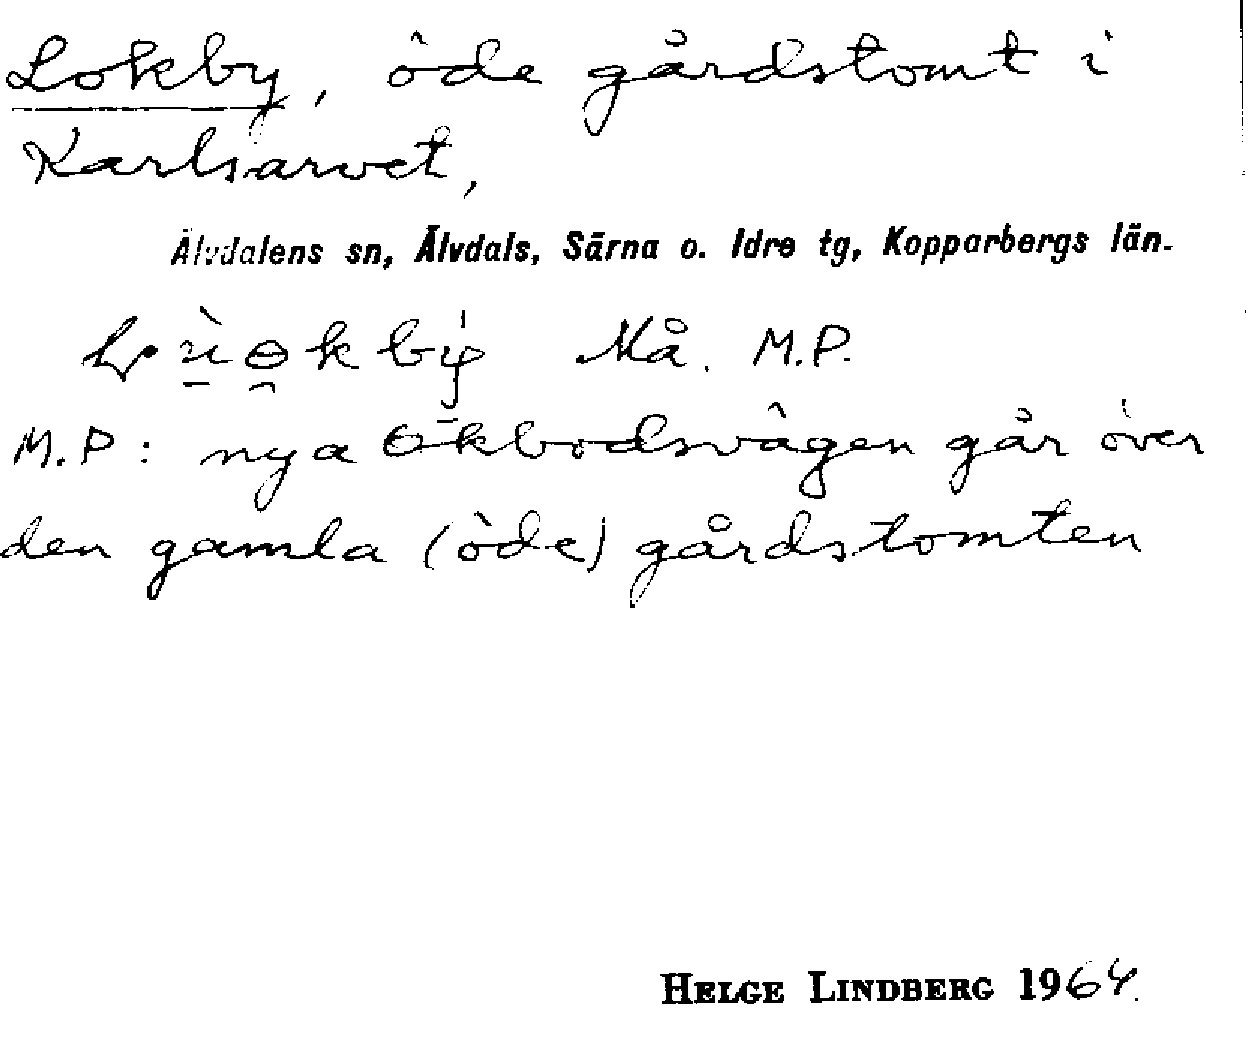 Lokby, öde gårdstomt i
Karlsarvet,
Älvdalens sn, Älvdals, Särna o. Idre tg, Kopparbergs län.
Må. M.P.
M.P: nya Økbodsvägen går över
den gamla (öde) gårdstomten
HELGE LINDBERG 1964.